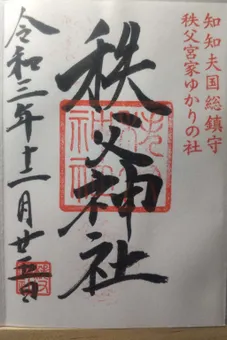 知知夫国総鎮守
秩父宮家ゆかりの社
秩父神社
令和三年十二月廿